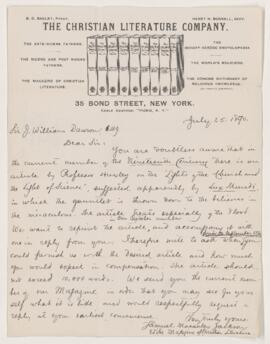 THE CHRISTIAN LITERATURE COMPANY.
THE ANTE-NICENE FATHERS.
THE NICENE AND POST NICENE FATHERS.
THE MAGAZINE OF CHRISTIAN LITERATURE.
THE WORLD'S RELIGIONS.
THE CONCISE DICTIONARY OF RELIGIOUS KNOWLEDGE.
35 BOND STREET, NEW YORK.
July 25. 1890.
Sir J. William Dawson,
Dear Sir:
You are doubtless aware that in
the current number of the Nineteenth Century there is an
article by Professor Huxley on the "Lights of the Church and
the Light of Science", suggested apparently by Lux Mundi,
in which the gauntlet is thrown down to the believer in
the miraculous. The article treats especially of the Flood
in our October number
We want to reprint the article, and accompany it with
one in reply from you. I therefore write to ask when you
could furnish us with the desired article and how much
you would expect in compensation. The article should
not exceed 10,000 words. We send you the current num-
ber our Magazine in order that you may see for your
self what it is like and would respectfully request a
reply at your earliest convenience.
Very truly yours
Samuel Macauley Jackson